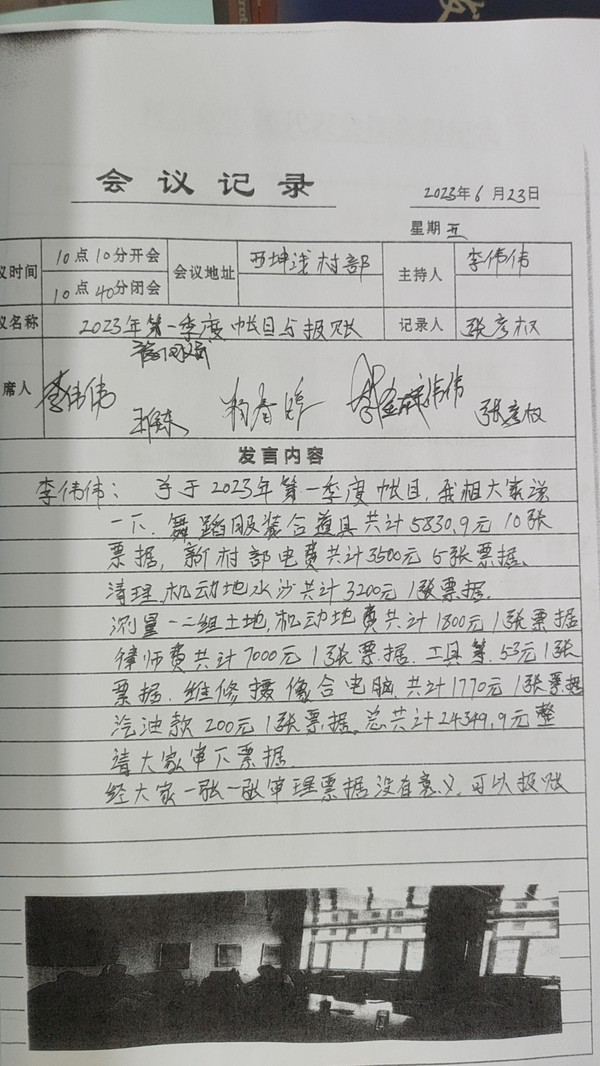 会议记录
2023年6月23日
星期五
议时间 10点10分开会 会议地址 西坤浅村部 主持人 李伟伟
10点40分闭会
议名称 2023年第一季度帐目与报账 记录人 张彦权
席人 李伟伟 张彦权
发言内容
李伟伟：关于2023年第一季度帐目，我和大家说
一下.舞蹈服装合道具共计5830.9元10张
票据，新村部电费共计3500元5张票据、
清理机动地水沙共计3200元1张票据.
测量一二组土地，机动地费共计1800元1张票据
律师费共计7000元1张票据.工具等.53元1张
票据.维修摄像合电脑.共计1770元1张票据
汽油款200元1张票据。总共计24349.9元整
请大家审下票据.
经大家一张一张审理票据没有意义.可以报账